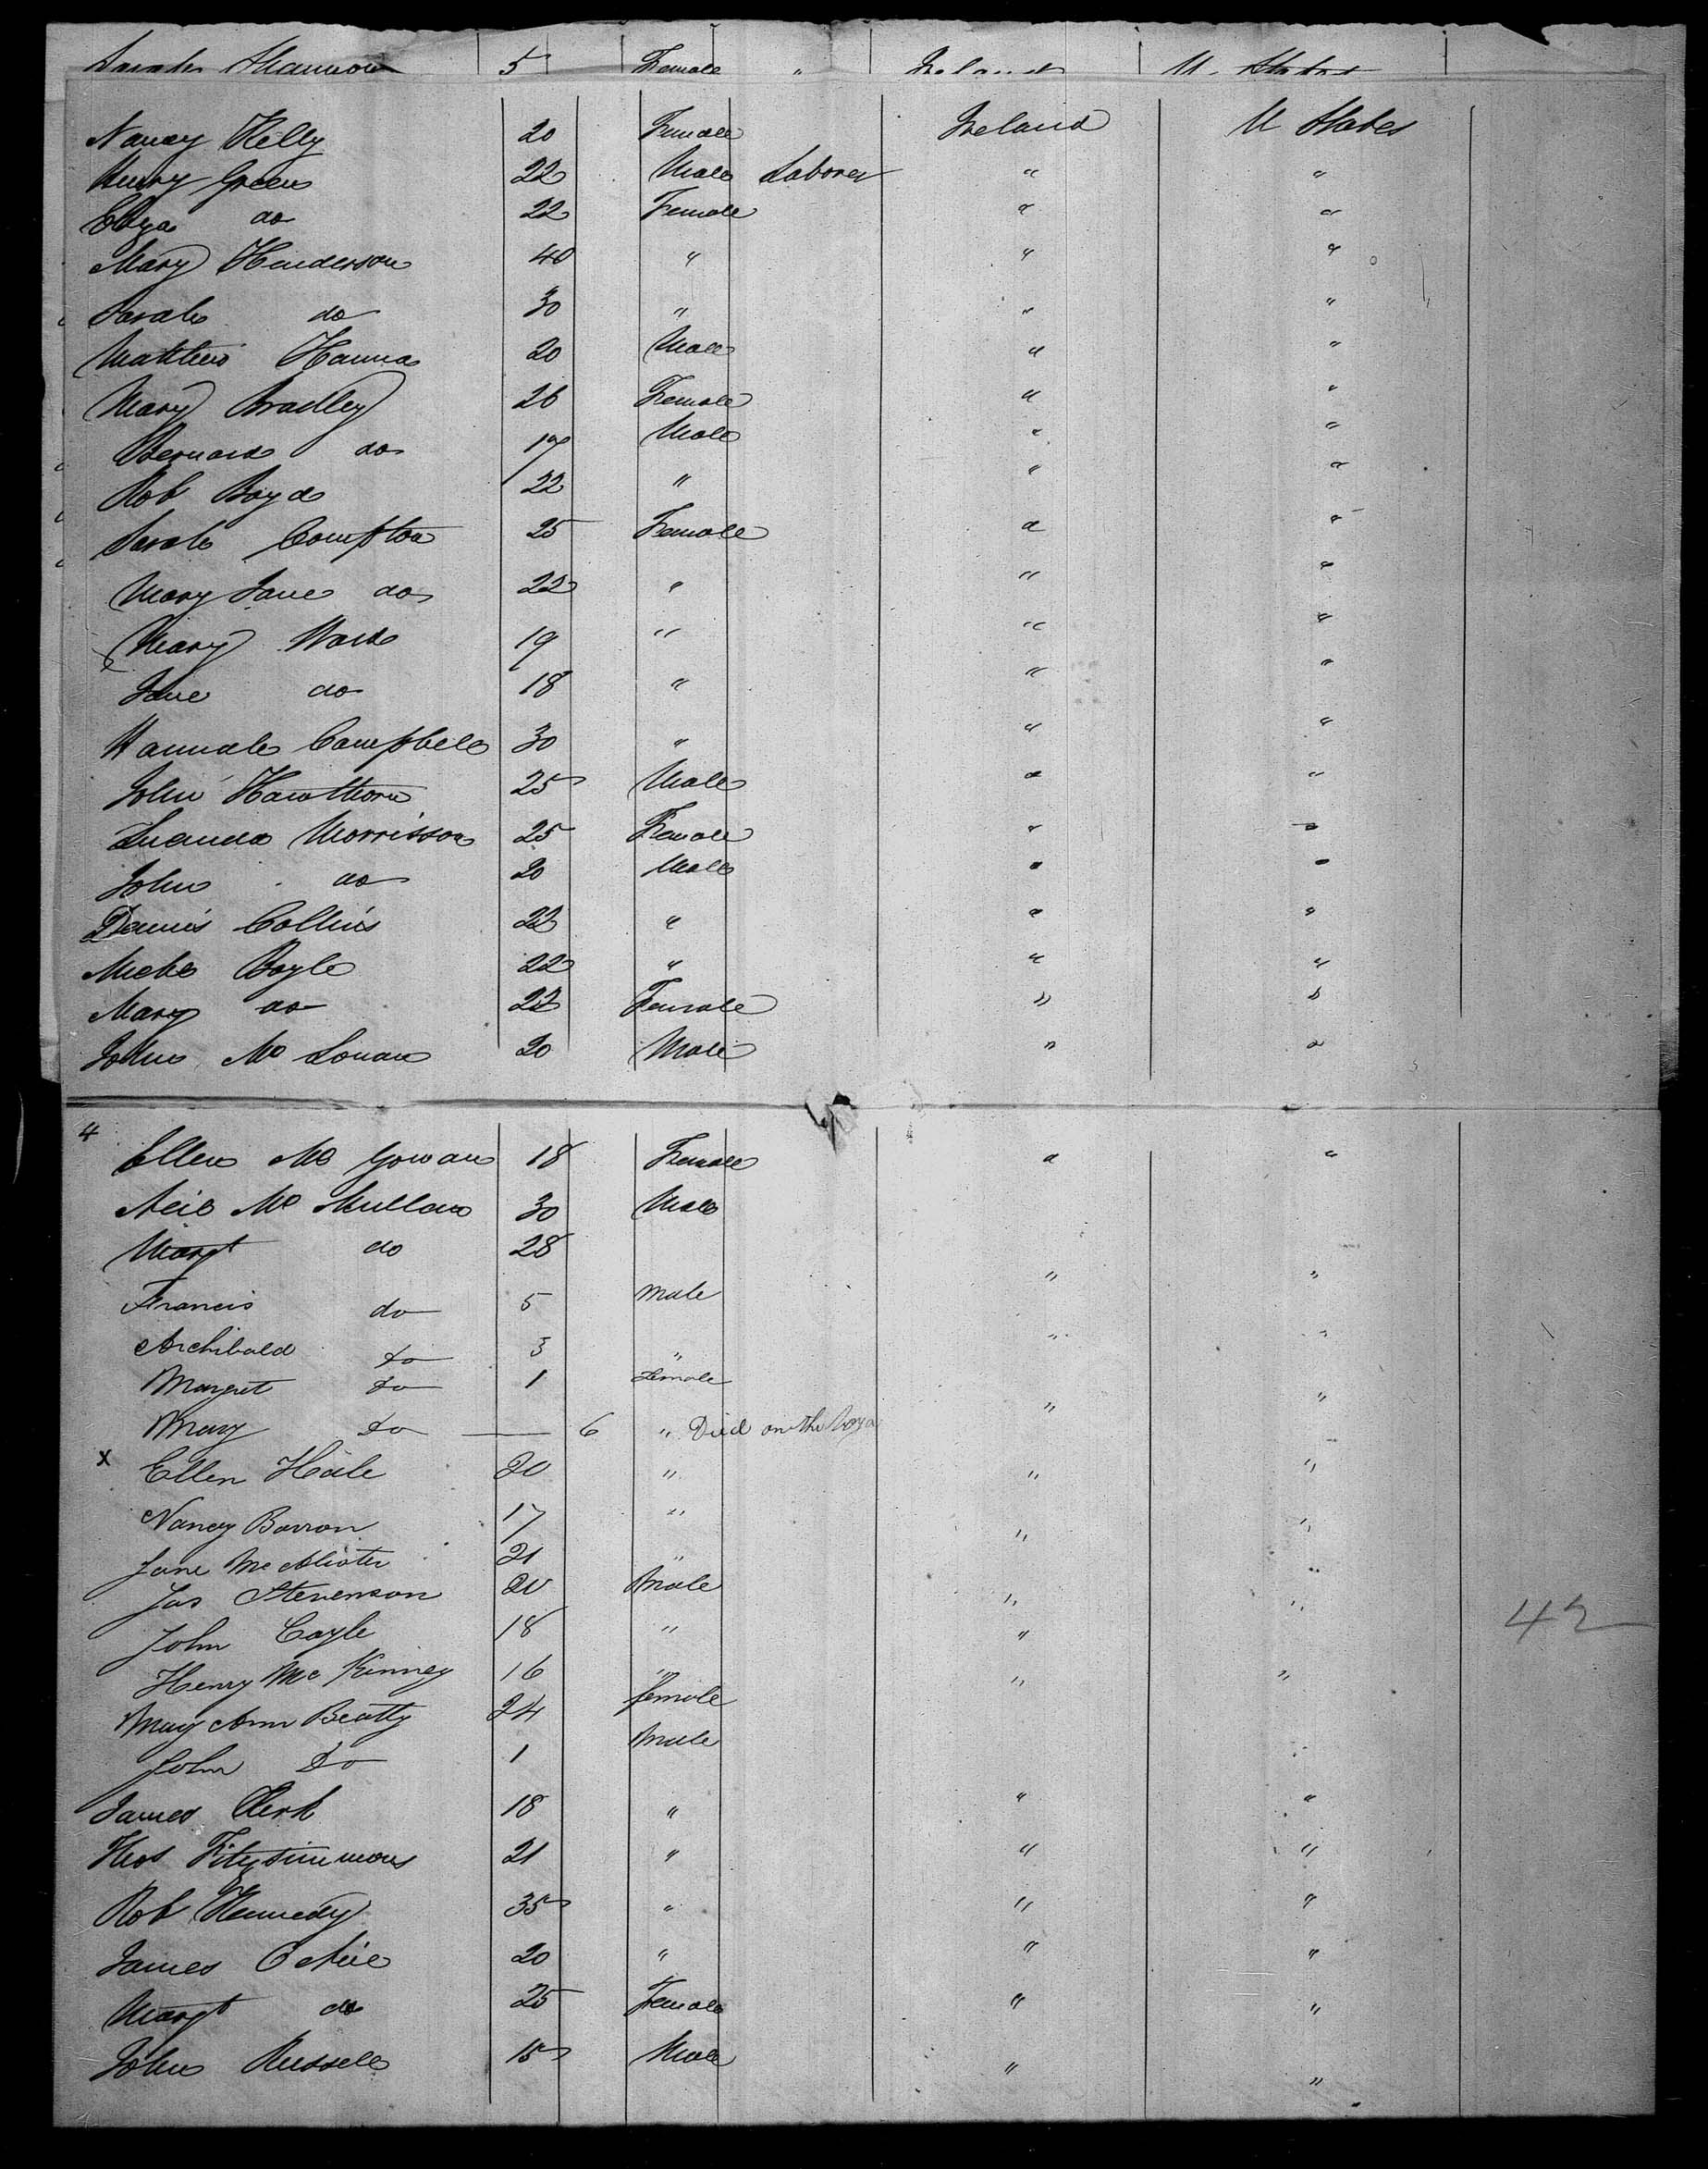 Sarah Shannon 5 Female " Ireland U. States
Nancy Kelly 20 Female Ireland U States
Henry Green 22 Male Laborer " "
Eliza do 22 Female " "
Mary Henderson 40 " " "
Sarah do 30 " " "
Matthew Hanna 20 Male " "
Mary Bradley 26 Female " "
Bernard do 17 Male " "
Rob Boyd 22 " " "
Sarah Compton 25 Female " "
Mary Jane do 22 " " "
Mary Ward 19 " " "
Jane do 18 " " "
Hannah Campbell 30 " " "
John Hawthorn 25 Male " "
Morrison 25 Female " "
John do 20 Male " "
Dennis Collins 22 " " "
Michl Boyle 22 " " "
Mary do 22 Female " "
John Mc 20 Male " "
4
Ellen Mc Gowan 18 Female " "
Neil Mc Mullan 30 Male
Margt do 28
Francis do 5 Male " "
Archibald do 3 " " "
Margret do 1 Female
Mary do — 6 " Died on the Voya " "
x Ellen Hale 20 " " "
Nancy Barron 17 " " "
Jane Mc Alister 21 " "
Jas Stevenson 20 Male " "
John Coyle 18 " "
42
Henry Mc Kinney 16 " " "
Mary Ann Beatty 24 female
John Do 1 Male "
James Clerk 18 " " "
Thos Fitzsimmons 21 " " "
Rob Kennedy 35 " " "
James O Neil 20 " " "
Margt do 25 Female " "
John Russell 15 Male " "